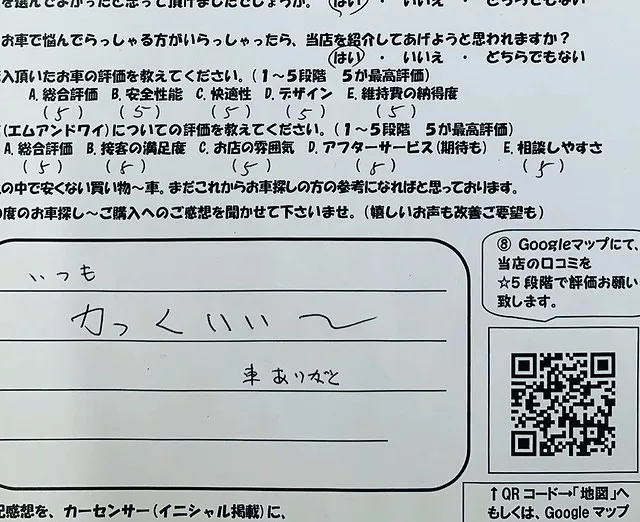 を選んでよかったと思って頂けましたでしょうか。 はい ・ いいえ ・ どちらでもない
お車で悩んでらっしゃる方がいらっしゃったら、当店を紹介してあげようと思われますか？
はい ・ いいえ ・ どちらでもない
入頂いたお車の評価を教えてください。(１～５段階 ５が最高評価)
A.総合評価 B.安全性能 C.快適性 D.デザイン E.維持費の納得度
(5) (5) (5) (5) (5)
(エムアンドワイ)についての評価を教えてください。(１～５段階 ５が最高評価)
A.総合評価 B.接客の満足度 C.お店の雰囲気 D.アフターサービス(期待も) E.相談しやすさ
(5) (5) (5) (5) (5)
の中で安くない買い物～車。まだこれからお車探しの方の参考になればと思っております。
度のお車探し～ご購入へのご感想を聞かせて下さいませ。(嬉しいお声も改善ご要望も)
いつも
カっくいい～
車ありがと
⑧ Googleマップにて、
当店の口コミを
☆５段階で評価お願い
致します。
↑QRコード→「地図」へ
もしくは、Google マップ
記感想を、カーセンサー(イニシャル掲載)に、